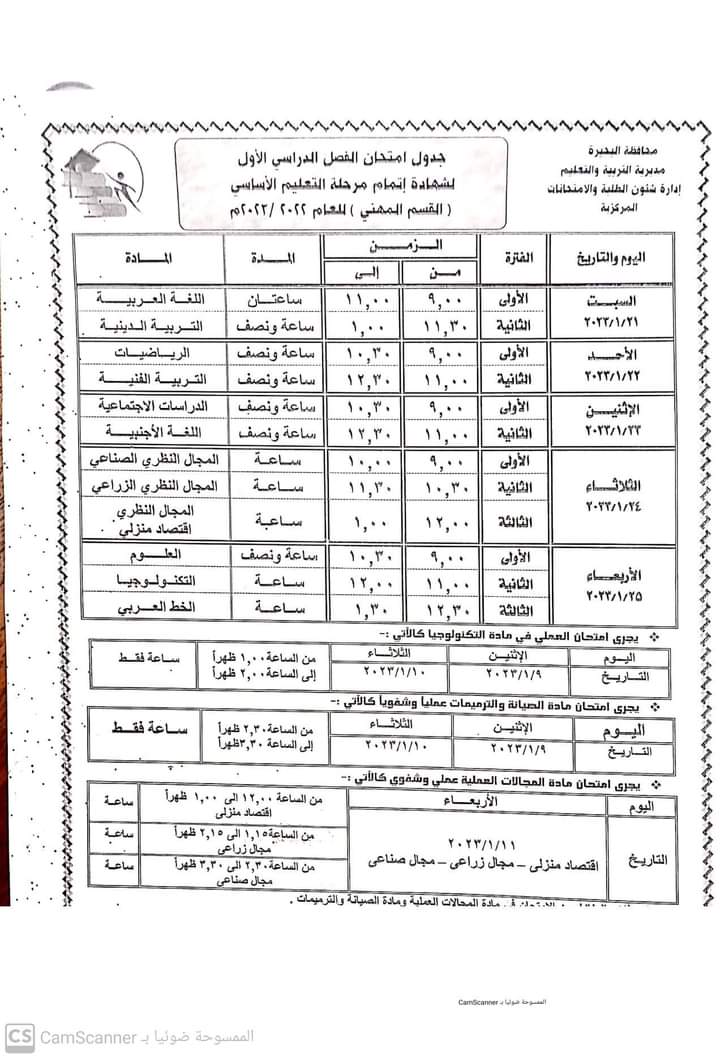 محافظة البحيرة
مديرية التربية والتعليم
إدارة شئون الطلبة والامتحانات
المركزية
جدول امتحان الفصل الدراسي الأول
لشهادة إتمام مرحلة التعليم الأساسي
( القسم المهني ) للعام ٢٠٢٢ /٢٠٢٣م
اليوم والتاريخ الفترة الزمن المدة المادة
من إلى
السبت ٢٠٢٣/١/٢١
الأولى ٩,٠٠ ١١,٠٠ ساعتان اللغة العربية
الثانية ١١,٣٠ ١,٠٠ ساعة ونصف التربية الدينية
الأحد ٢٠٢٣/١/٢٢
الأولى ٩,٠٠ ١٠,٣٠ ساعة ونصف الرياضيات
الثانية ١١,٠٠ ١٢,٣٠ ساعة ونصف التربية الفنية
الإثنين ٢٠٢٣/١/٢٣
الأولى ٩,٠٠ ١٠,٣٠ ساعة ونصف الدراسات الاجتماعية
الثانية ١١,٠٠ ١٢,٣٠ ساعة ونصف اللغة الأجنبية
الثلاثاء ٢٠٢٣/١/٢٤
الأولى ٩,٠٠ ١٠,٠٠ ساعة المجال النظري الصناعي
الثانية ١٠,٣٠ ١١,٣٠ ساعة المجال النظري الزراعي
الثالثة ١٢,٠٠ ١,٠٠ ساعة المجال النظري
اقتصاد منزلي
الأربعاء ٢٠٢٣/١/٢٥
الأولى ٩,٠٠ ١٠,٣٠ ساعة ونصف العلوم
الثانية ١١,٠٠ ١٢,٠٠ ساعة التكنولوجيا
الثالثة ١٢,٣٠ ١,٣٠ ساعة الخط العربي
❖ يجرى امتحان العملي في مادة التكنولوجيا كالآتي :-
اليوم الإثنين الثلاثاء من الساعة ١,٠٠ ظهراً ساعة فقط
التاريخ ٢٠٢٣/١/٩ ٢٠٢٣/١/١٠ إلى الساعة ٢,٠٠ ظهراً
❖ يجرى امتحان مادة الصيانة والترميمات عملياً وشفوياً كالآتي :-
اليوم الإثنين الثلاثاء من الساعة ٢,٣٠ ظهراً ساعة فقط
التاريخ ٢٠٢٣/١/٩ ٢٠٢٣/١/١٠ إلى الساعة ٣,٣٠ظهراً
❖ يجرى امتحان مادة المجالات العملية عملي وشفوي كالأتي :-
اليوم الأربعاء
التاريخ ٢٠٢٣/١/١١
اقتصاد منزلى – مجال زراعى – مجال صناعى
من الساعة ١٢,٠٠ الى ١,٠٠ ظهراً ساعة
اقتصاد منزلى
من الساعة ١,١٥ الى ٢,١٥ ظهراً ساعة
مجال زراعى
من الساعة ٢,٣٠ الى ٣,٣٠ ظهراً ساعة
مجال صناعى
الامتحان في مادة المجالات العملية ومادة الصيانة والترميمات .
الممسوحة ضوئيا بـ CamScanner
CS CamScanner الممسوحة ضوئيا بـ